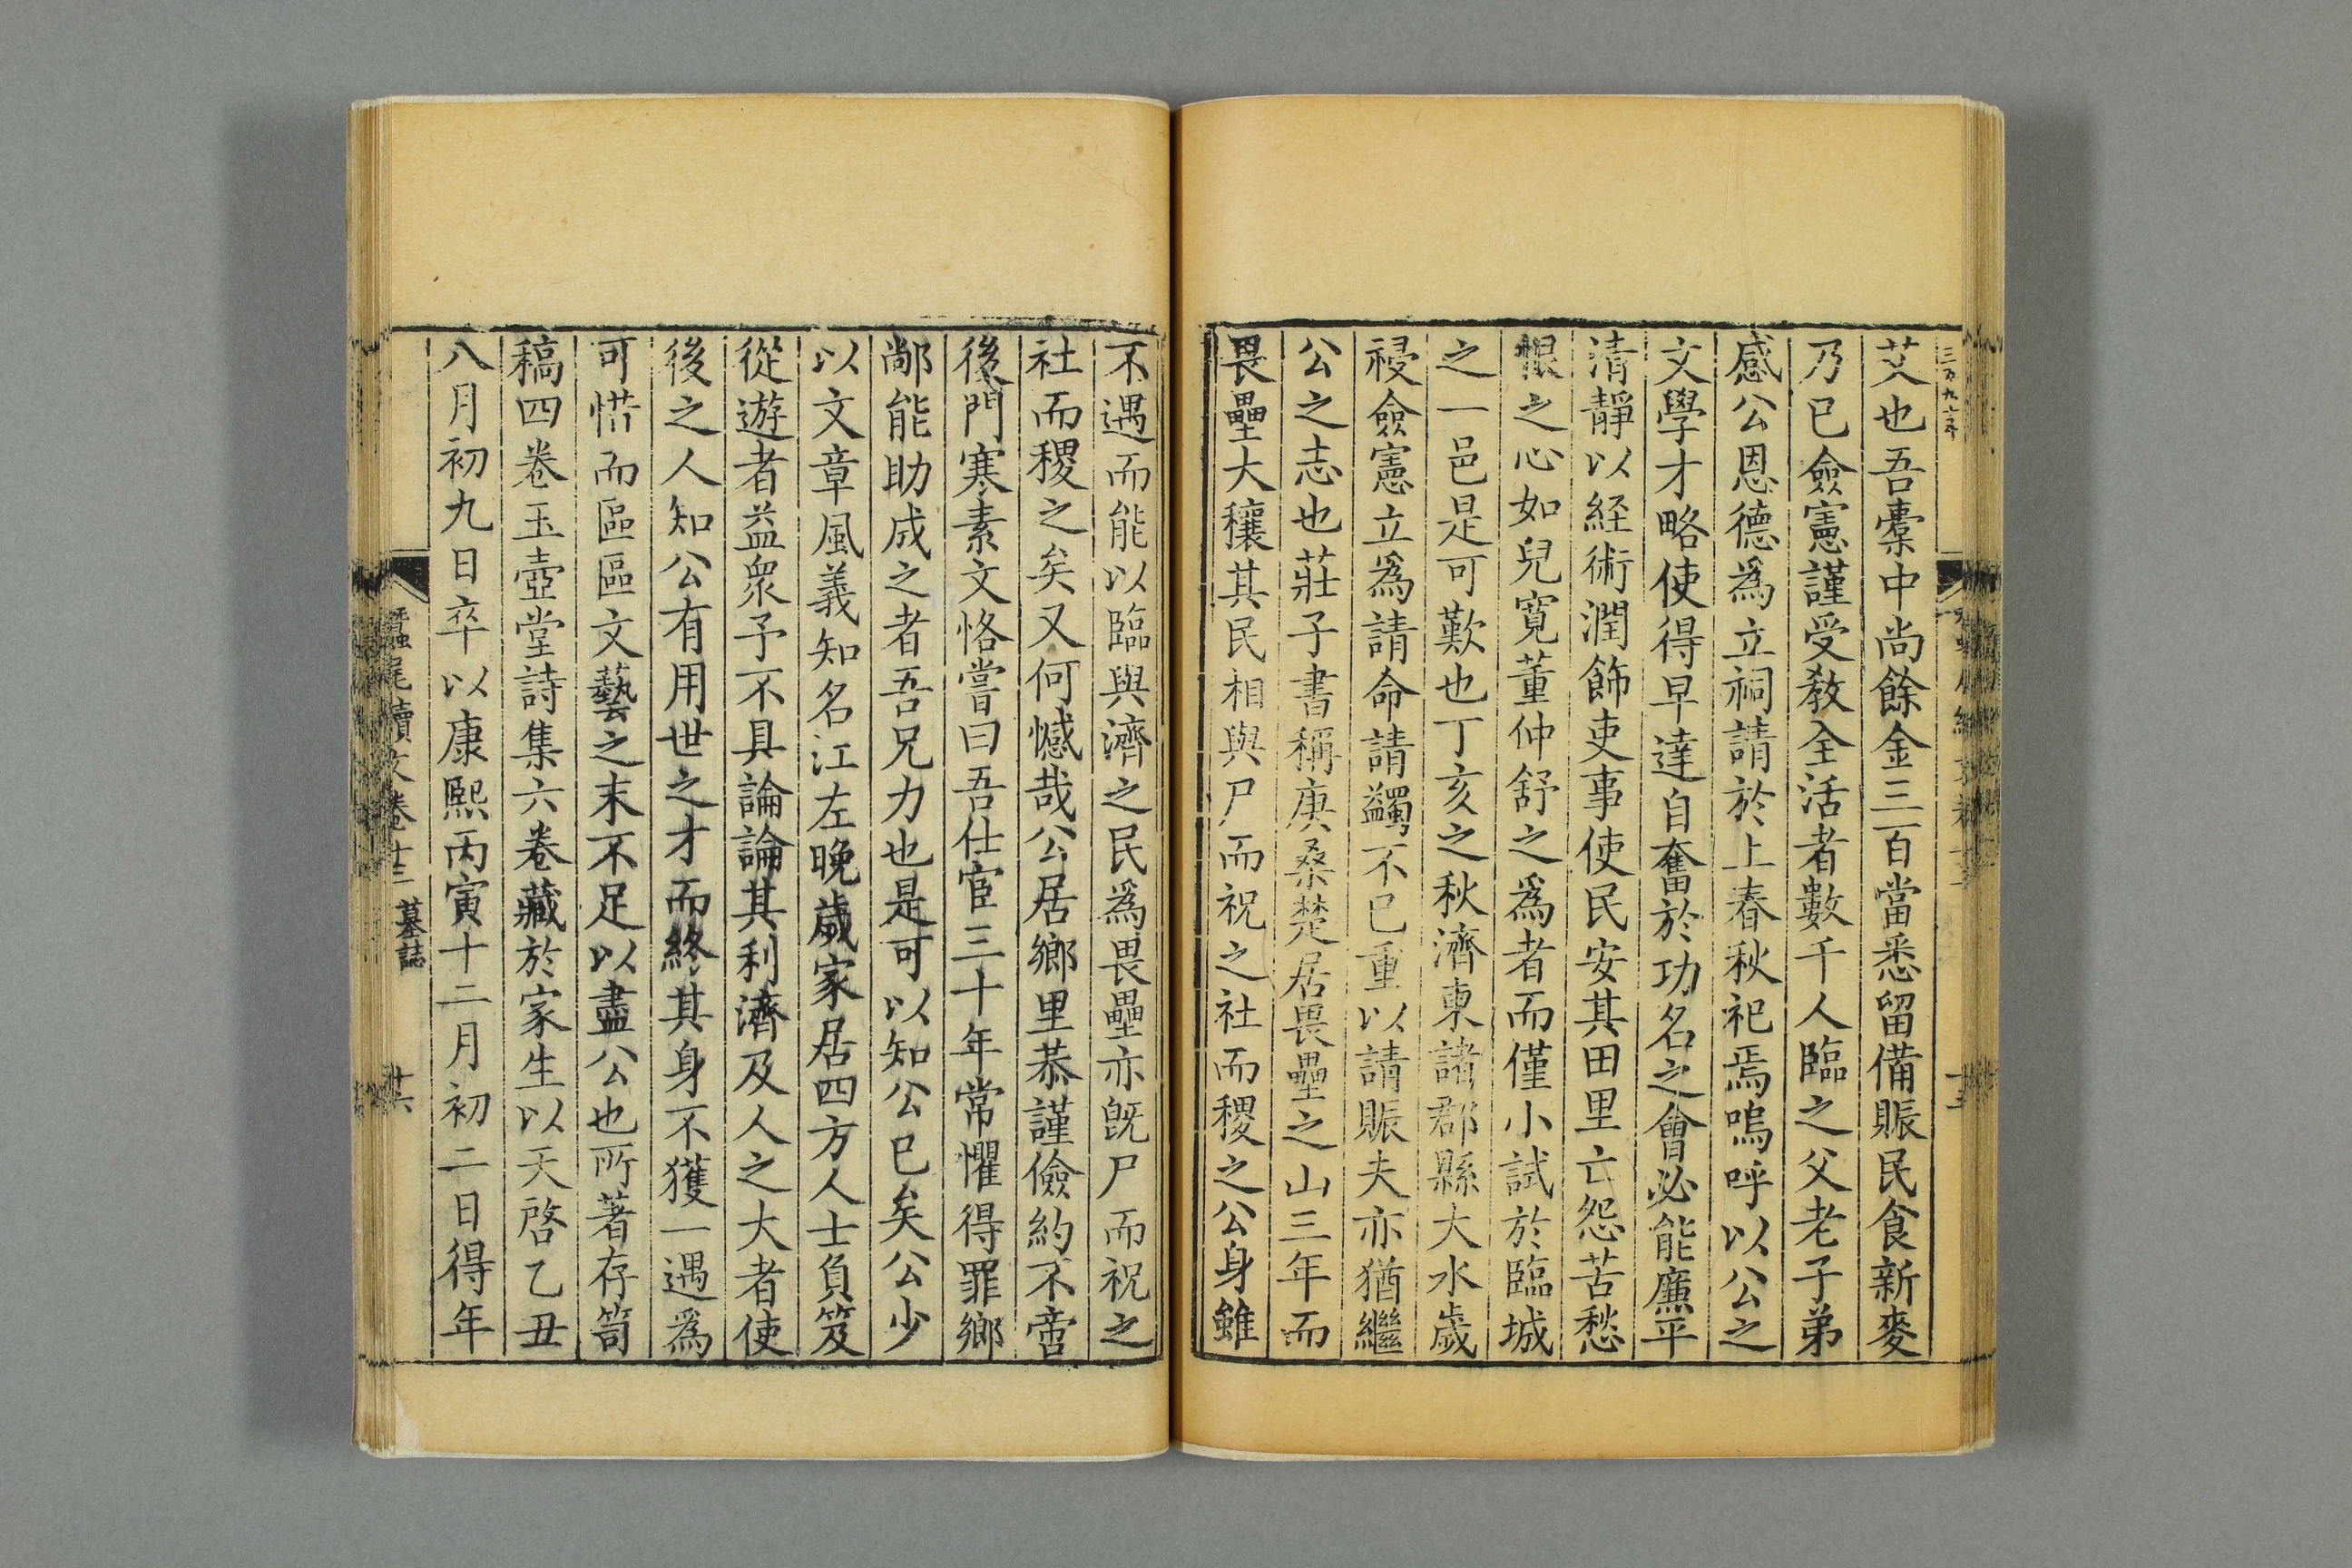 艾也吾橐中尚餘金三百當悉留備賑民食新麥
乃已僉憲謹受教全活者數千人臨之父老子弟
感公恩德爲立祠請於上春秋祀焉嗚呼以公之
文學才略使得早達自奮於功名之會必能廉平
清靜以経術潤飾吏事使民安其田里亡怨苦愁
恨之心如兒寛董仲舒之爲者而僅小試於臨城
之一邑是可歎也丁亥之秋濟東諸郡縣大水歲
祲僉憲立爲請命請蠲不已重以請賑夫亦猶繼
公之志也莊子書稱庚桑楚居畏壘之山三年而
畏壘大穰其民相與尸而祝之社而稷之公身雖
不遇而能以臨與濟之民爲畏壘亦旣尸而祝之
社而稷之矣又何憾哉公居鄉里恭謹儉約不啻
後門寒素文恪嘗曰吾仕宦三十年常懼得罪鄉
鄰能助成之者吾兄力也是可以知公已矣公少
以文章風義知名江左晚歲家居四方人士負笈
從遊者益衆予不具論論其利濟及人之大者使
後之人知公有用世之才而終其身不獲一遇爲
可惜而區區文藝之末不足以盡公也所著存笥
稿四卷玉壺堂詩集六卷藏於家生以天啓乙丑
八月初九日卒以康熙丙寅十二月初二日得年
蠶尾續文卷十二 墓誌 十六